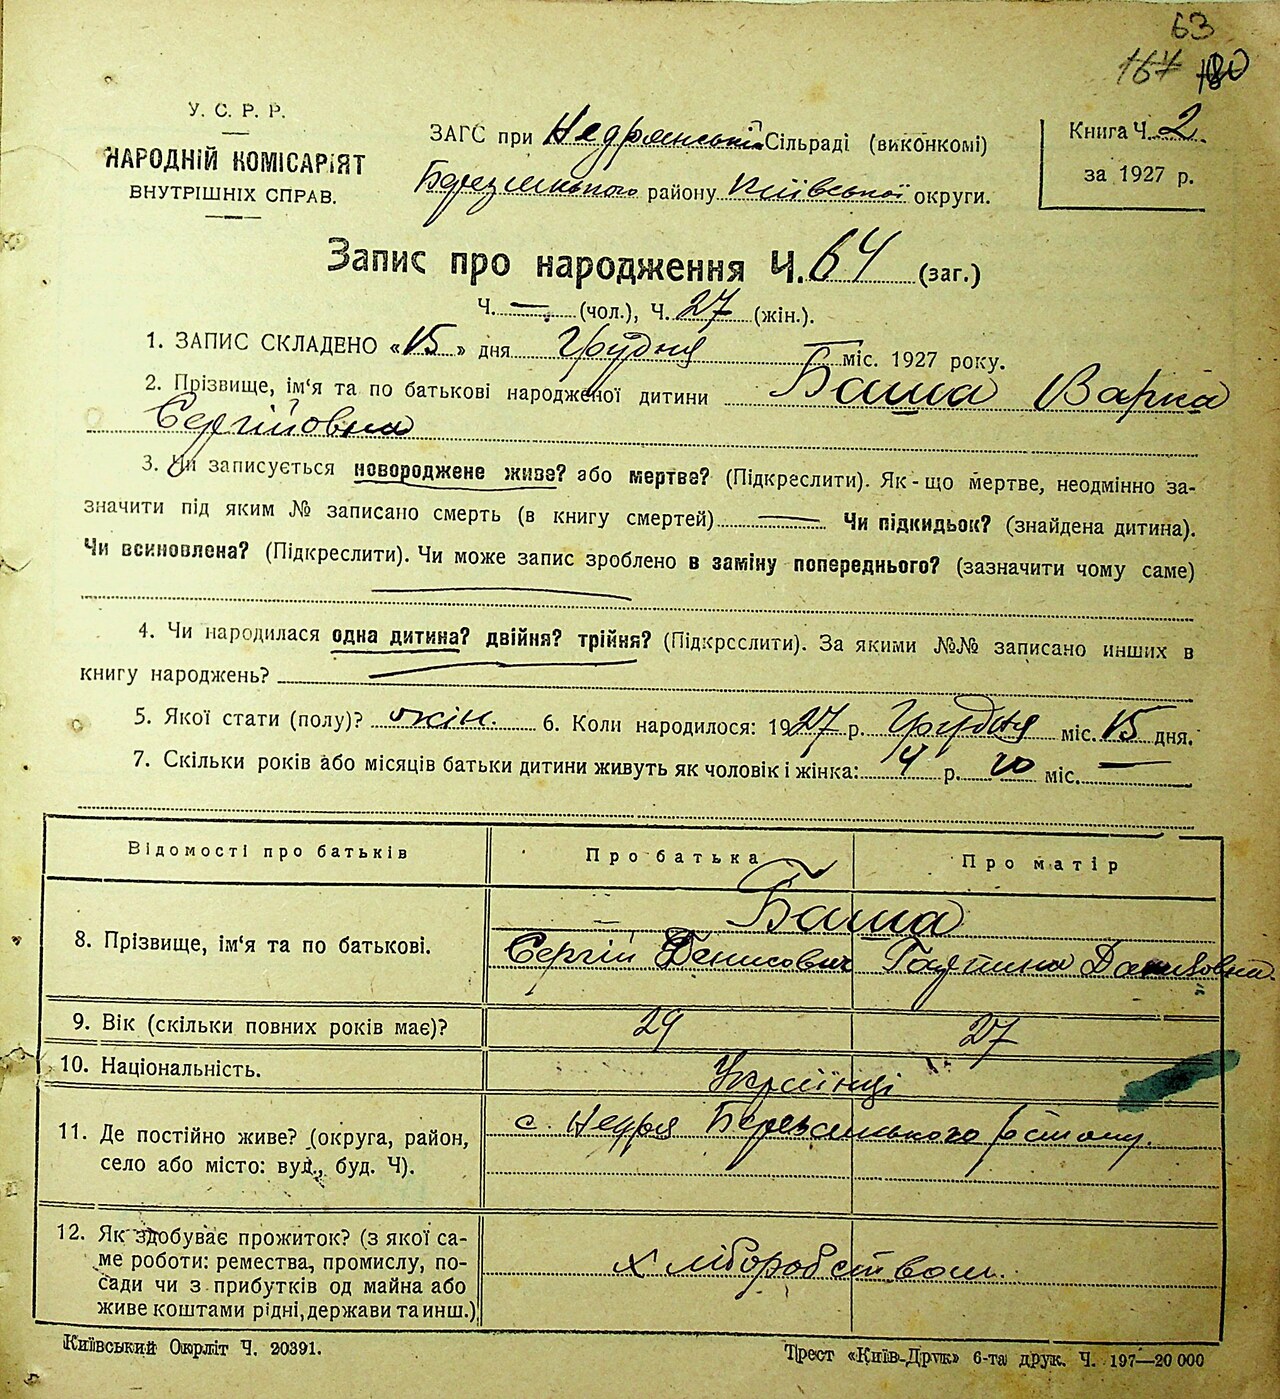 63
167 180
У. С. Р. Р.
НАРОДНІЙ КОМІСАРІЯТ
ВНУТРІШНІХ СПРАВ.
ЗАГС при Недрянській Сільраді (виконкомі)
Березанського району Київської округи.
Книга Ч. 2
за 1927 р.
Запис про народження Ч. 64 (заг.)
Ч. — (чол.), Ч. 27 (жін.).
1. ЗАПИС СКЛАДЕНО «15» дня Грудня міс. 1927 року.
2. Прізвище, ім'я та по батькові народженої дитини Баша Варка
Сергійовна
3. Чи записується новороджене живе? або мертве? (Підкреслити). Як-що мертве, неодмінно за-
значити під яким № записано смерть (в книгу смертей) — Чи підкидьок? (знайдена дитина).
Чи всиновлена? (Підкреслити). Чи може запис зроблено в заміну попереднього? (зазначити чому саме)
4. Чи народилася одна дитина? двійня? трійня? (Підкреслити). За якими №№ записано инших в
книгу народжень?
5. Якої стати (полу)? жін. 6. Коли народилося: 1927 р. Грудня міс. 15 дня.
7. Скільки років або місяців батьки дитини живуть як чоловік і жінка: 4 р. 10 міс. —
Відомості про батьків Про батька Про матір
Баша
8. Прізвище, ім'я та по батькові. Сергій Денисович
9. Вік (скільки повних років має)? 29 27
10. Національність. Українці
11. Де постійно живе? (округа, район, с. Недря Березанського
село або місто: вул., буд. Ч).
12. Як здобуває прожиток? (з якої са-
ме роботи: ремества, промислу, по- хліборобством.
сади чи з прибутків од майна або
живе коштами рідні, держави та инш.)
Київський Окрліт Ч. 20391.
Трест «Київ-Друк» 6-та друк. Ч. 197—20 000